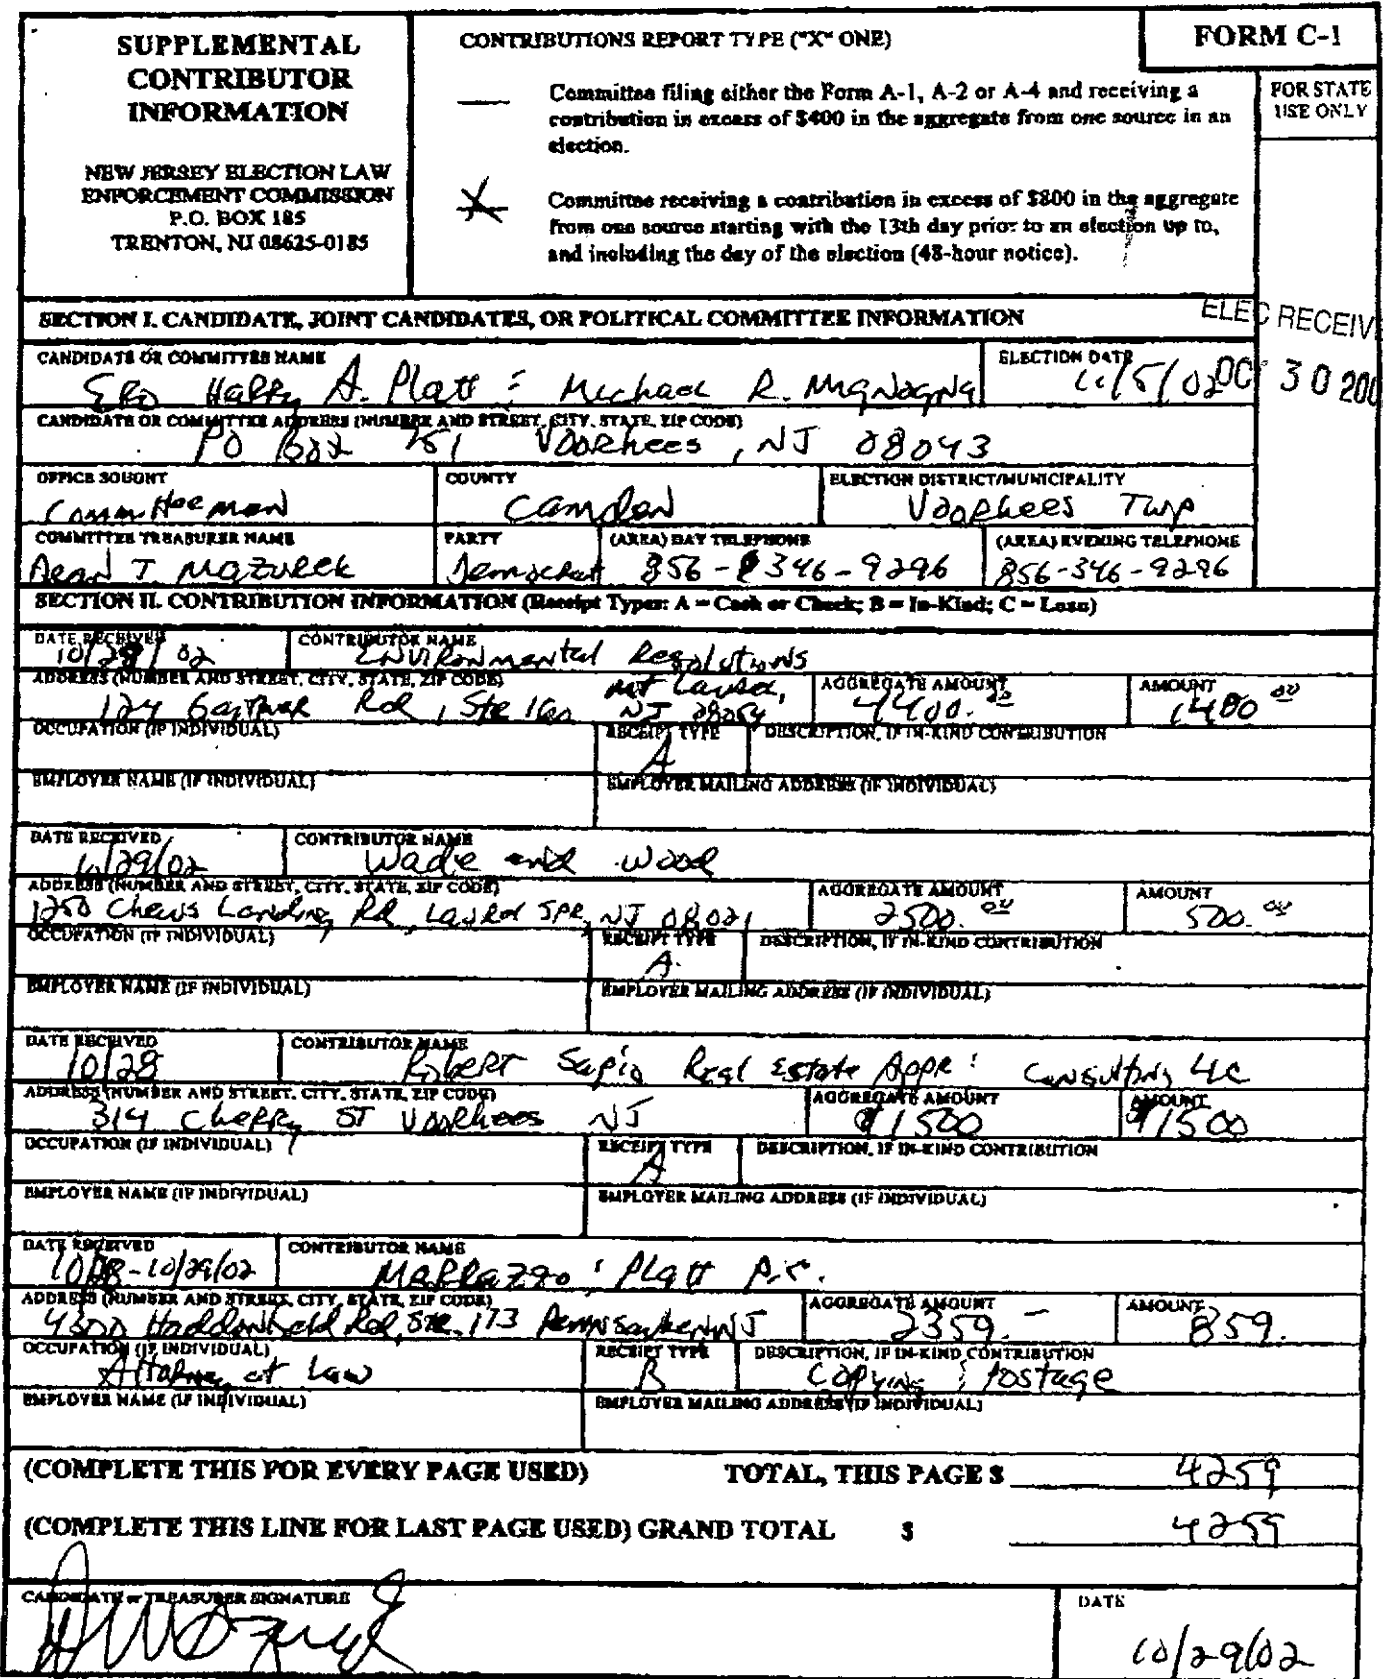 SUPPLEMENTAL
CONTRIBUTOR
INFORMATION
NEW JERSEY ELECTION LAW
ENFORCEMENT COMMISSION
P.O. BOX 185
TRENTON, NJ 08625-0185
CONTRIBUTIONS REPORT TYPE ("X" ONE)
FORM C-1
FOR STATE
USE ONLY
Committee filing either the Form A-1, A-2 or A-4 and receiving a
contribution in excess of $400 in the aggregate from one source in an
election.
X Committee receiving a contribution in excess of $800 in the aggregate
from one source starting with the 13th day prior to an election up to,
and including the day of the election (48-hour notice).
SECTION I. CANDIDATE, JOINT CANDIDATES, OR POLITICAL COMMITTEE INFORMATION
ELEC RECEIV
OCT 30 200
CANDIDATE OR COMMITTEE NAME
Harry A. Platt : Michael R. Mignogna
ELECTION DATE
11/5/02
CANDIDATE OR COMMITTEE ADDRESS (NUMBER AND STREET, CITY, STATE, ZIP CODE)
PO Box Voorhees, NJ 08043
OFFICE SOUGHT
Committeeman
COUNTY
Camden
ELECTION DISTRICT/MUNICIPALITY
Voorhees Twp
COMMITTEE TREASURER NAME
Dean T. Mazurek
PARTY
Democrat
(AREA) DAY TELEPHONE
856-346-9296
(AREA) EVENING TELEPHONE
856-346-9296
SECTION II. CONTRIBUTION INFORMATION (Receipt Types: A = Cash or Check; B = In-Kind; C = Loan)
DATE RECEIVED
10/28/02
CONTRIBUTOR NAME
Environmental Resolutions
ADDRESS (NUMBER AND STREET, CITY, STATE, ZIP CODE)
124 Gaither Rd, Ste 160 Mt Laurel, NJ 08054
AGGREGATE AMOUNT
4400.00
AMOUNT
1400 00
OCCUPATION (IF INDIVIDUAL)
RECEIPT TYPE
A
DESCRIPTION, IF IN-KIND CONTRIBUTION
EMPLOYER NAME (IF INDIVIDUAL)
EMPLOYER MAILING ADDRESS (IF INDIVIDUAL)
DATE RECEIVED
10/29/02
CONTRIBUTOR NAME
Wade and Wood
ADDRESS (NUMBER AND STREET, CITY, STATE, ZIP CODE)
1250 Chews Landing Rd, Laurel SPR, NJ 08021
AGGREGATE AMOUNT
2500.00
AMOUNT
500.00
OCCUPATION (IF INDIVIDUAL)
RECEIPT TYPE
A
DESCRIPTION, IF IN-KIND CONTRIBUTION
EMPLOYER NAME (IF INDIVIDUAL)
EMPLOYER MAILING ADDRESS (IF INDIVIDUAL)
DATE RECEIVED
10/28
CONTRIBUTOR NAME
Robert Sapio Real Estate Appr : Consulting LLC
ADDRESS (NUMBER AND STREET, CITY, STATE, ZIP CODE)
314 Cherry ST Voorhees NJ
AGGREGATE AMOUNT
$1500
AMOUNT
$1500
OCCUPATION (IF INDIVIDUAL)
RECEIPT TYPE
A
DESCRIPTION, IF IN-KIND CONTRIBUTION
EMPLOYER NAME (IF INDIVIDUAL)
EMPLOYER MAILING ADDRESS (IF INDIVIDUAL)
DATE RECEIVED
10/28-10/29/02
CONTRIBUTOR NAME
Marrazzo : Platt P.C.
ADDRESS (NUMBER AND STREET, CITY, STATE, ZIP CODE)
4300 Haddonfield Rd, Ste. 173 Pennsauken NJ
AGGREGATE AMOUNT
2359. -
AMOUNT
859.
OCCUPATION (IF INDIVIDUAL)
Attorney at Law
RECEIPT TYPE
B
DESCRIPTION, IF IN-KIND CONTRIBUTION
Copying : Postage
EMPLOYER NAME (IF INDIVIDUAL)
EMPLOYER MAILING ADDRESS (IF INDIVIDUAL)
(COMPLETE THIS FOR EVERY PAGE USED) TOTAL, THIS PAGE $ 4259
(COMPLETE THIS LINE FOR LAST PAGE USED) GRAND TOTAL $ 4259
CANDIDATE or TREASURER SIGNATURE
DATE
10/29/02